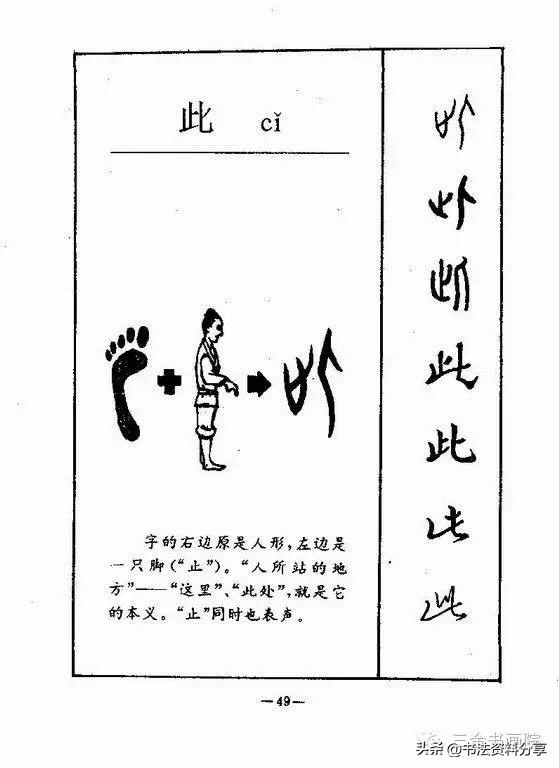 此 cǐ
字的右边原是人形，左边是
一只脚（“止”）。“人所站的地
方”——“这里”、“此处”，就是它
的本义。“止”同时也表声。
此
此
此
此
此
此
此
—49—
三余书画院
头条 @书法资料分享